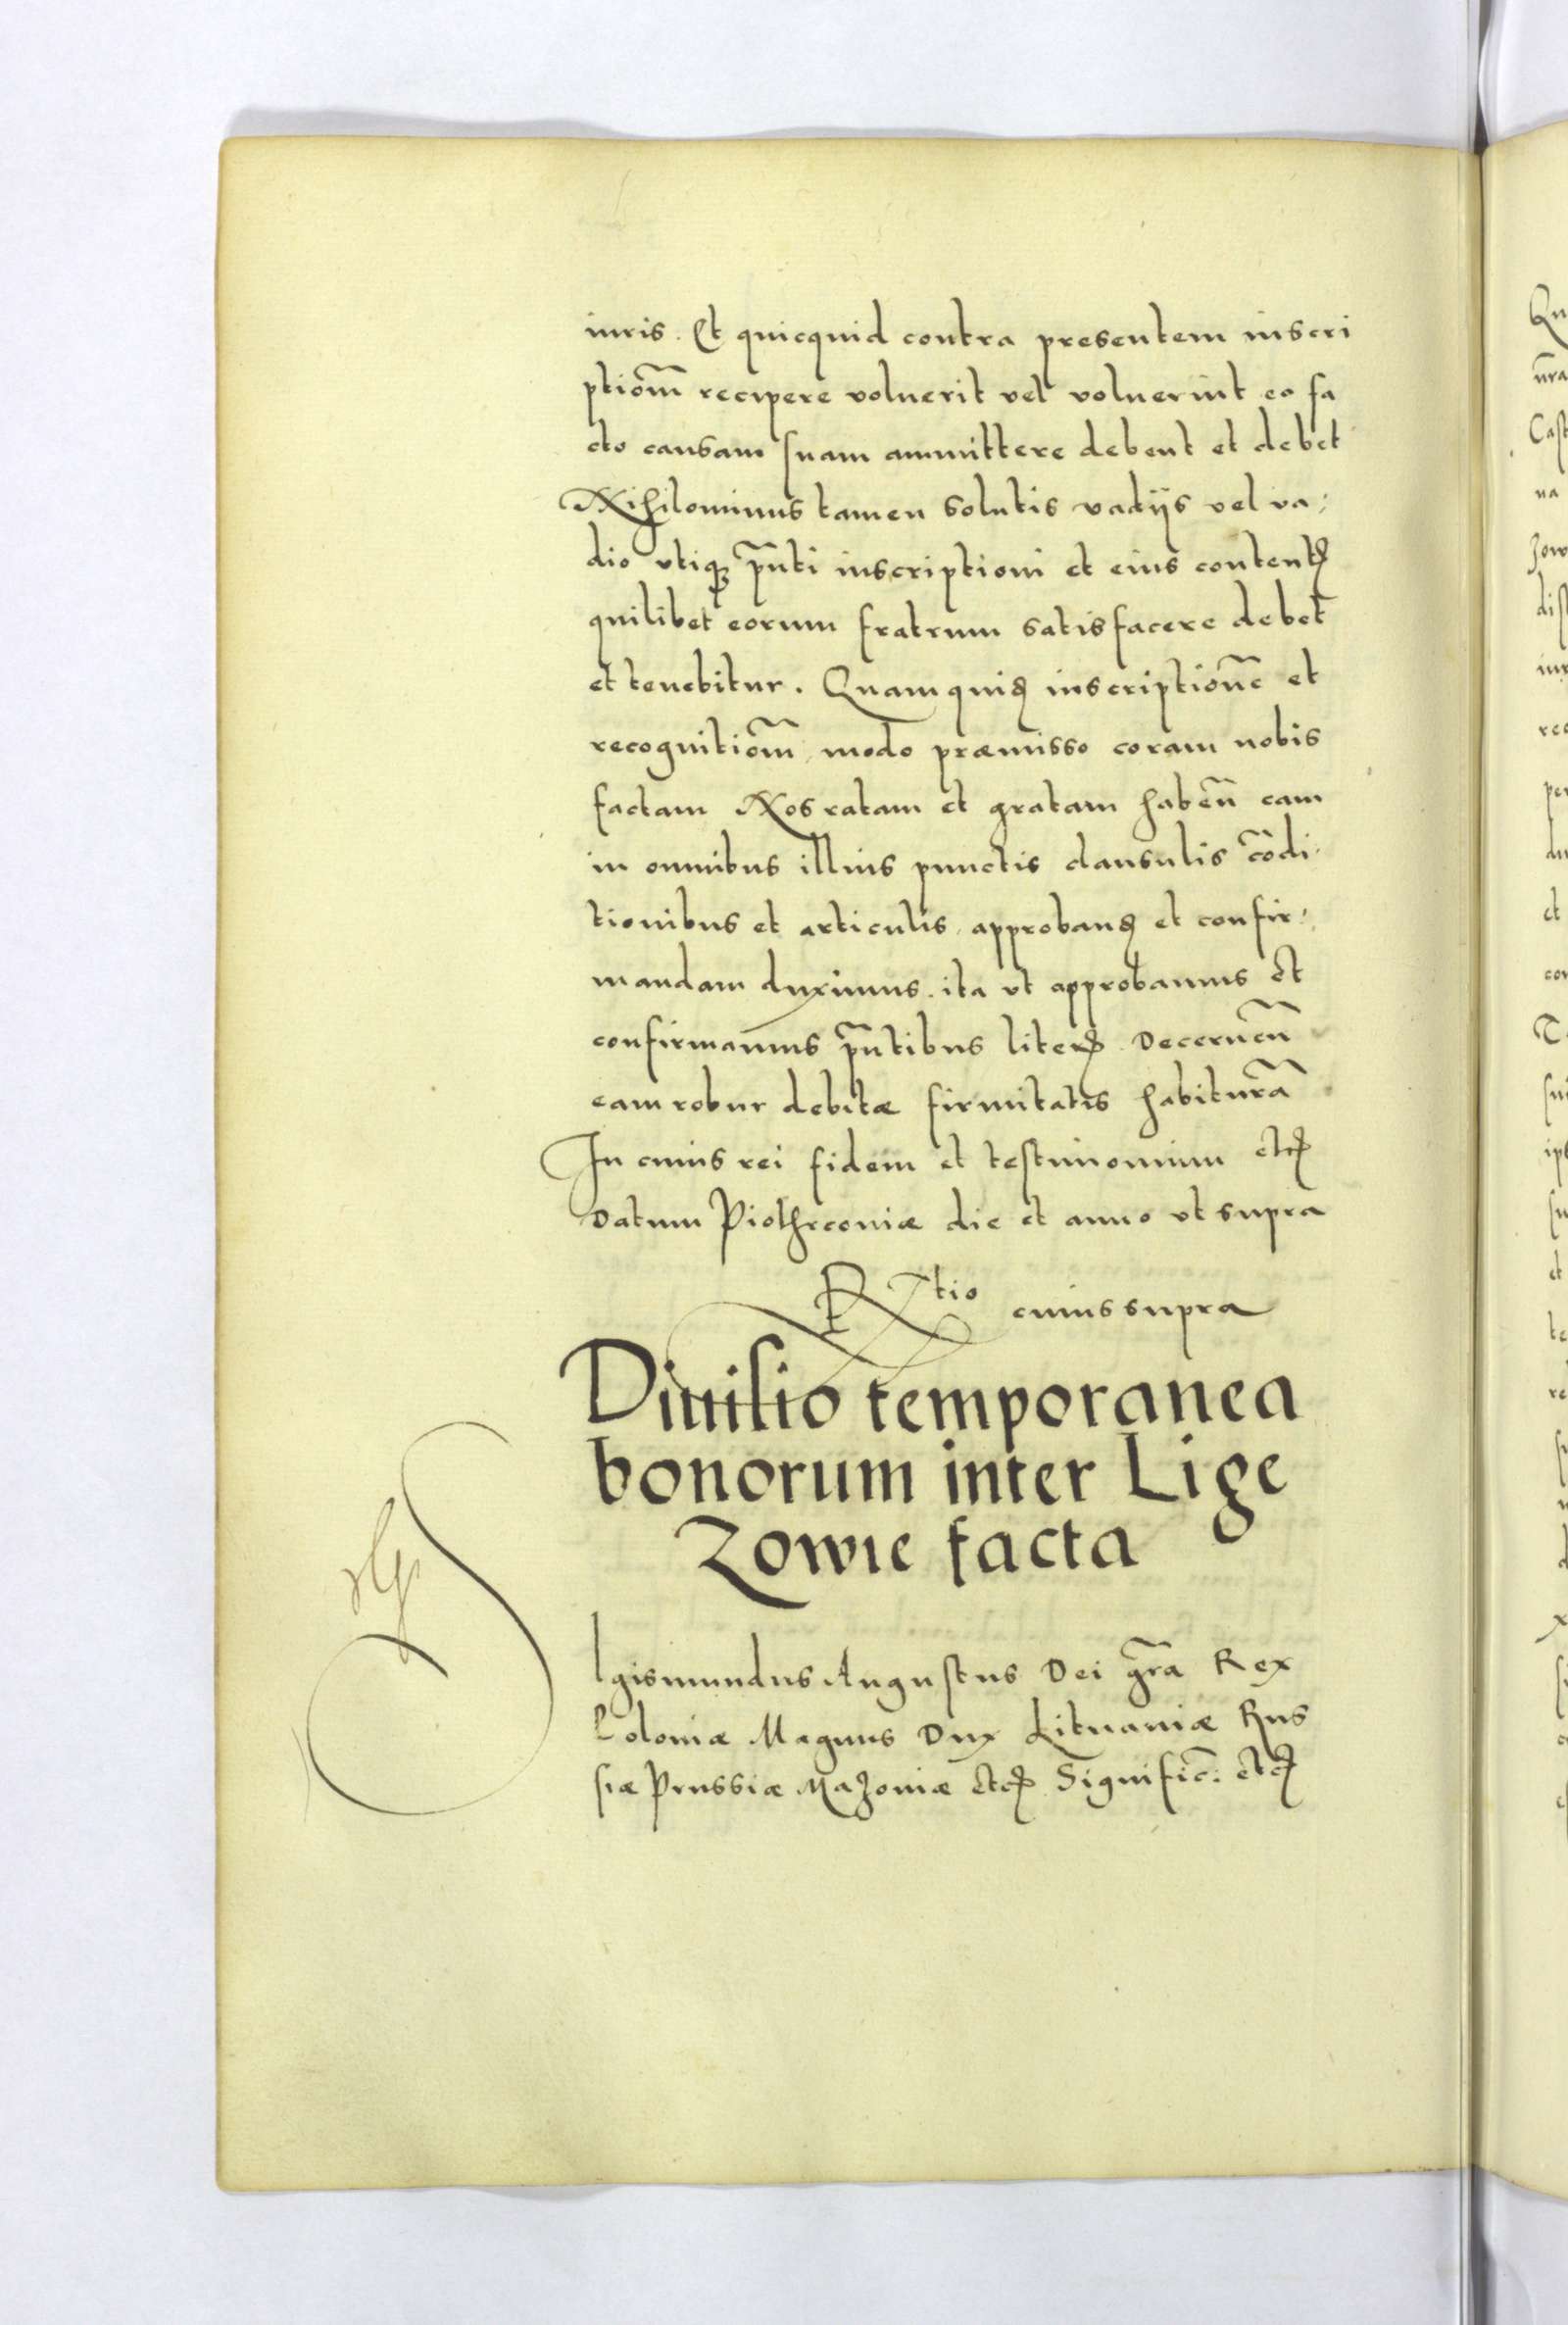 iuris. Et quicquid contra presentem inscri
ptiom̃ recipere voluerit vel voluerint eo fa
cto causam suam ammittere debent et debet
Nihilominus tamen solutis vadijs vel va:
dio vtiqꝫ p̃nti inscriptioni et eius contentꝭ
quilibet eorum fratrum satisfacere debet
et tenebitur. Quamquidꝭ inscriptionẽ et
recognitiom̃ modo præmisso coram nobis
factam Nos ratam et gratam habeñ eam
in omnibus illius punctis clausulis cõdi
tionibus et articulis approbandꝭ et confir:
mandam duximus. ita vt approbamus et
confirmamus p̃ntibus literꝭ Decerneñ
eam robur debitæ firmitatis habiturã
In cuius rei fidem et testimonium etcꝭ
Datum Piothrcouiæ die et anno vt supra
R̃tio cuius supra
Diuisio temporanea
bonorum inter Lige
Zowie facta
S
Igismundus Augustus Dei gr̃a Rex
Poloniæ Magnus Dux Lituaniæ Rus
siæ Prussiæ Mazouiæ etcꝭ Significẽ: etcꝭ